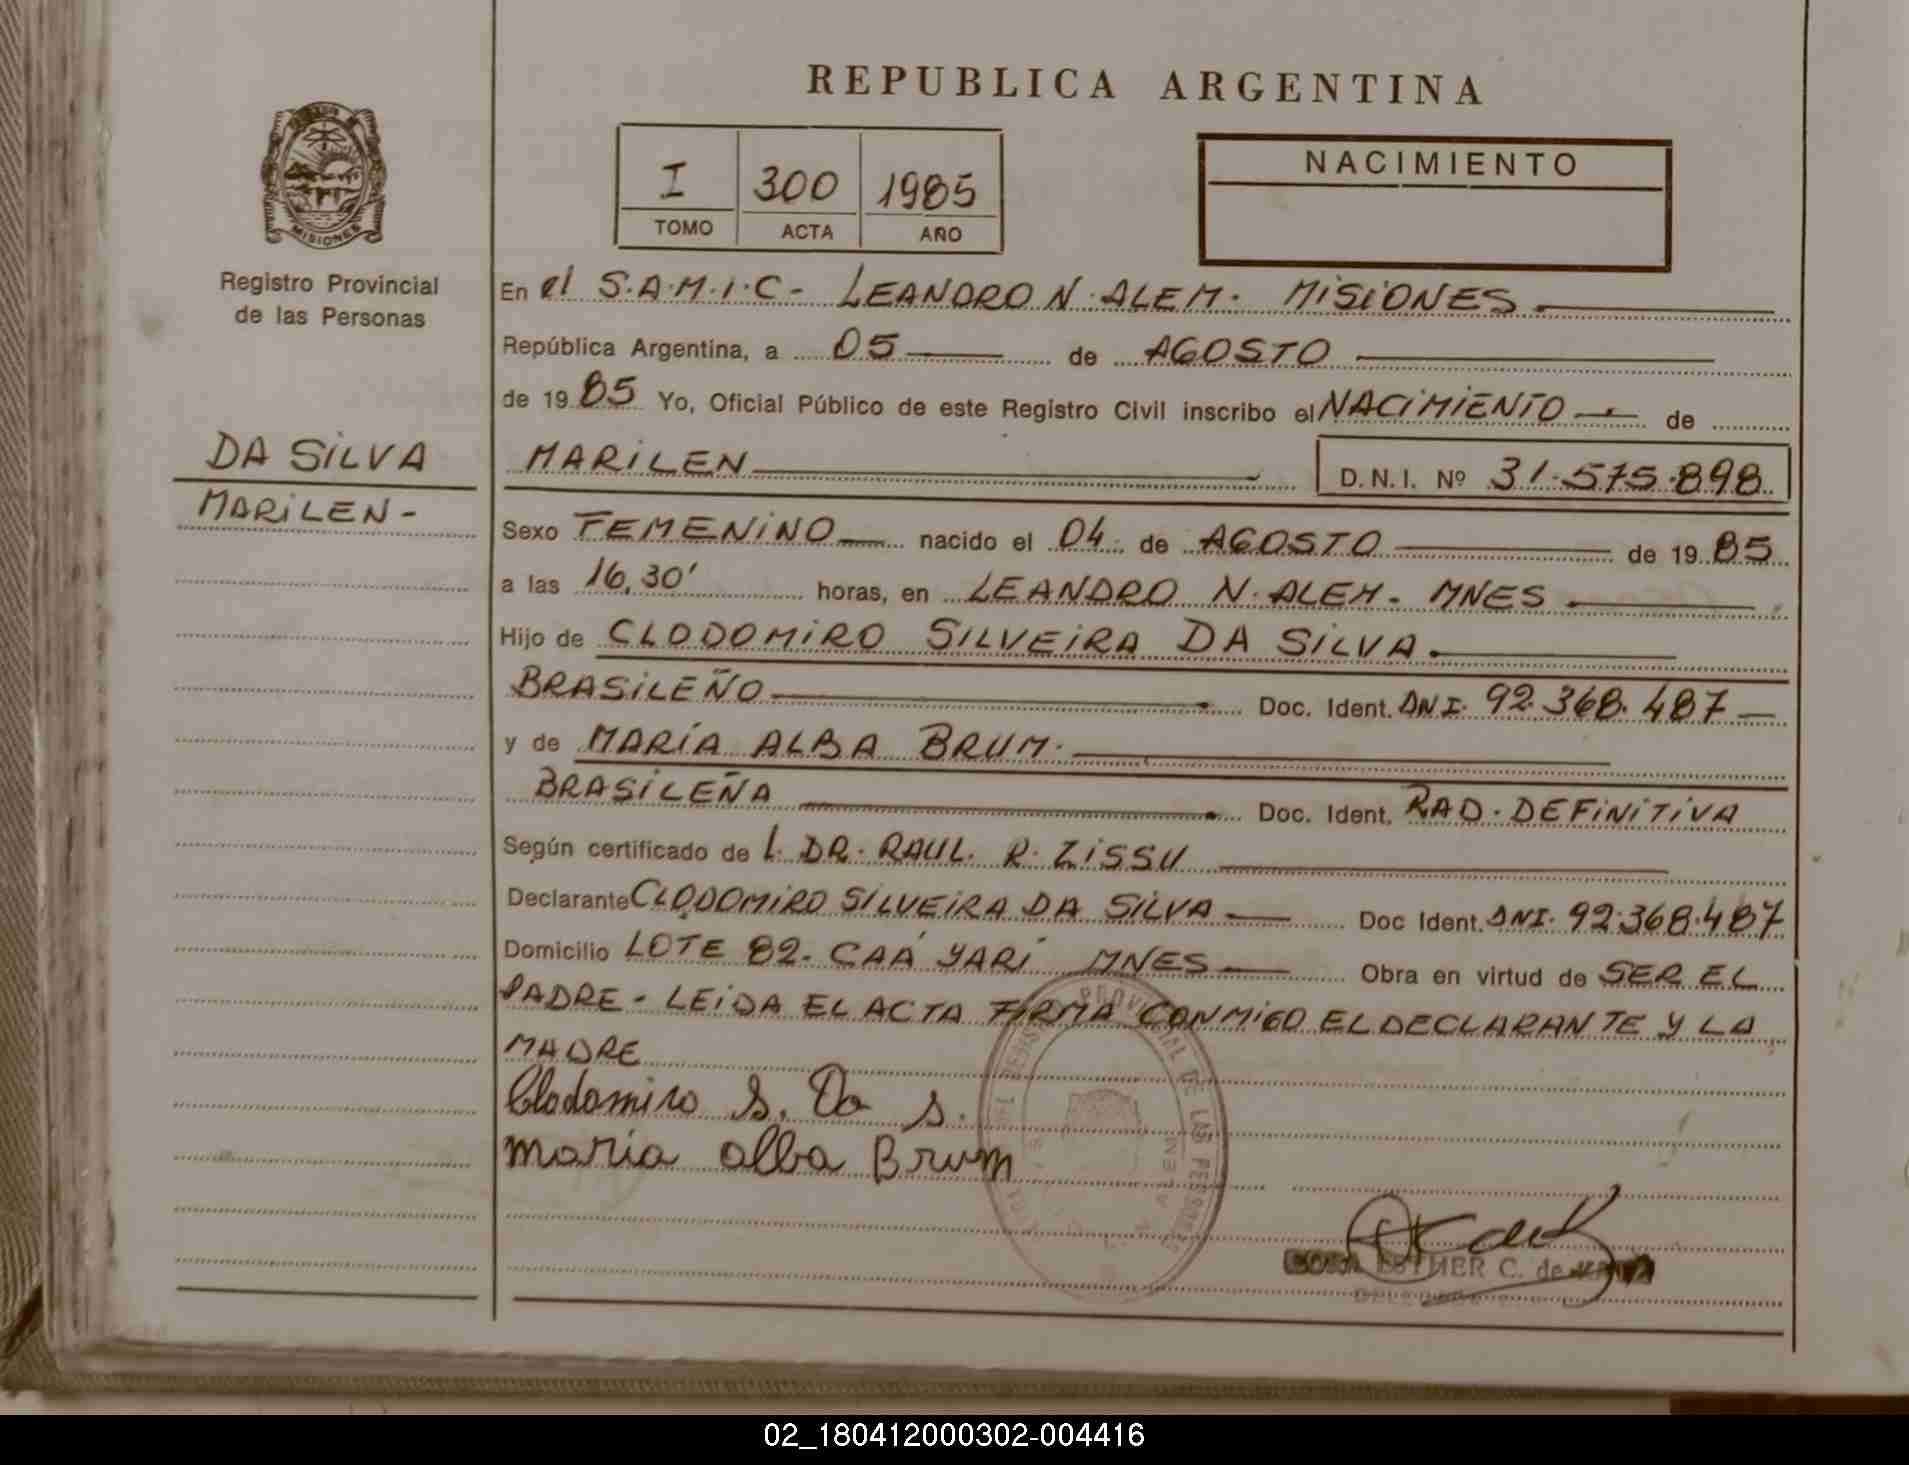 REPUBLICA ARGENTINA
I 300 1985
TOMO ACTA AÑO
NACIMIENTO
MISIONES
Registro Provincial
de las Personas
DA SILVA
MARILEN-
En el S.A.M.I.C- LEANDRO N. ALEM. MISIONES
República Argentina, a 05 de AGOSTO
de 1985 Yo, Oficial Público de este Registro Civil inscribo el NACIMIENTO de
MARILEN D.N.I. Nº 31.575.898
Sexo FEMENINO nacido el 04 de AGOSTO de 1985
a las 16,30' horas, en LEANDRO N. ALEM. MNES
Hijo de CLODOMIRO SILVEIRA DA SILVA.
BRASILEÑO Doc. Ident. DNI. 92.368.487
y de MARÍA ALBA BRUM.
BRASILEÑA Doc. Ident. RAD. DEFINITIVA
Según certificado de l. DR. RAUL R. ZISSU
Declarante CLODOMIRO SILVEIRA DA SILVA Doc Ident. DNI. 92.368.487
Domicilio LOTE 82- CAÁ YARÍ MNES Obra en virtud de SER EL
PADRE - LEIDA EL ACTA FIRMA CONMIGO EL DECLARANTE Y LA
MADRE
Clodomiro S. Da S.
maria alba Brum
PROVINCIAL DE LAS PERSONAS
ESTHER C. de
02_180412000302-004416